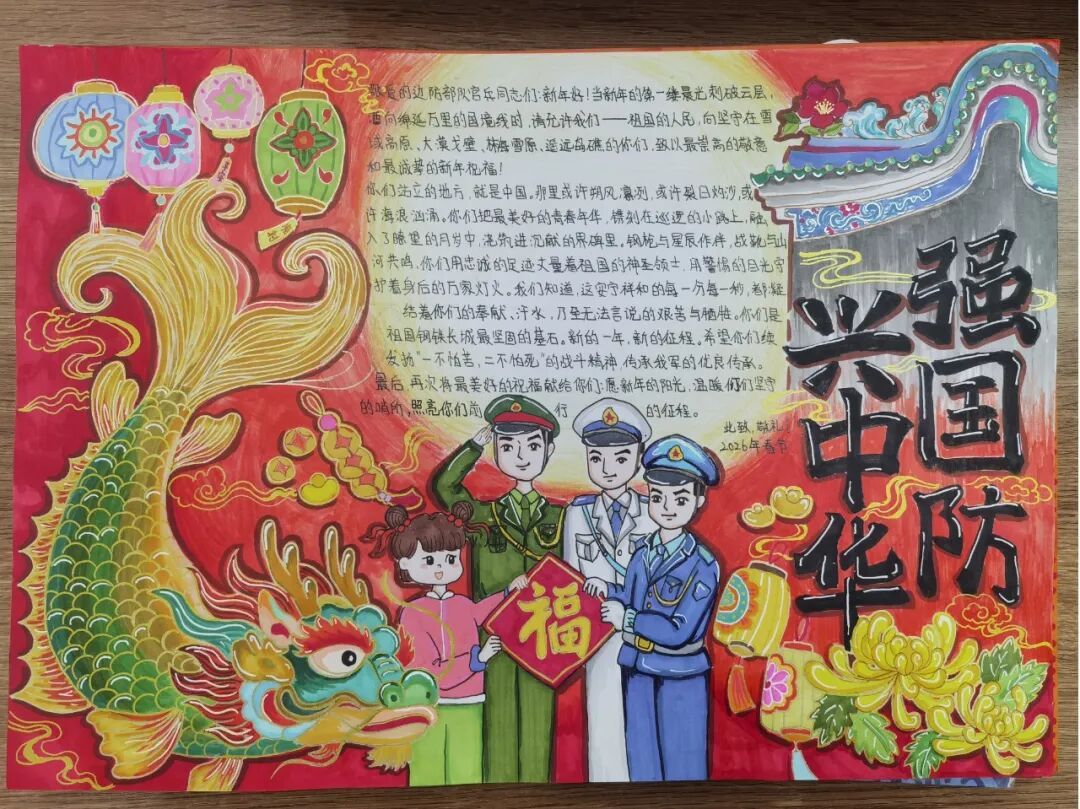 敬爱的边防部队官兵同志们：新年好！当新年的第一缕晨光刺破云层，
洒向绵延万里的国境线时，请允许我们——祖国的人民，向坚守在雪
域高原、大漠戈壁、林海雪原、遥远岛礁的你们，致以最崇高的敬意
和最诚挚的新年祝福！
你们站立的地方，就是中国。那里或许朔风凛冽，或许裂日灼沙，或
许海浪汹涌。你们把最美好的青春年华，镌刻在巡逻的小路上，融
入了瞭望的月岁中，浇筑进沉默的界碑里。钢枪与星辰作伴，战靴与山
河共鸣，你们用忠诚的足迹丈量着祖国的神圣领土，用警惕的目光守
护着身后的万家灯火。我们知道，这安宁祥和的每一分每一秒，都凝
结着你们的奉献、汗水，乃至无法言说的艰苦与牺牲。你们是
祖国钢铁长城最坚固的基石。新的一年，新的征程。希望你们继续
发扬“一不怕苦、二不怕死”的战斗精神，传承我军的优良传承。
最后，再次将最美好的祝福献给你们：愿新年的阳光，温暖你们坚守
的哨所，照亮你们前行的征程。
此致，敬礼。
2026年春节
强国防
兴中华
福